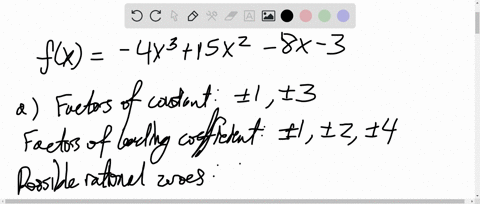 f(x) = -4x³+15x² -8x-3
a) Factors of constant: ±1, ±3
Factors of leading coefficient: ±1, ±2, ±4
Possible rational zeroes: